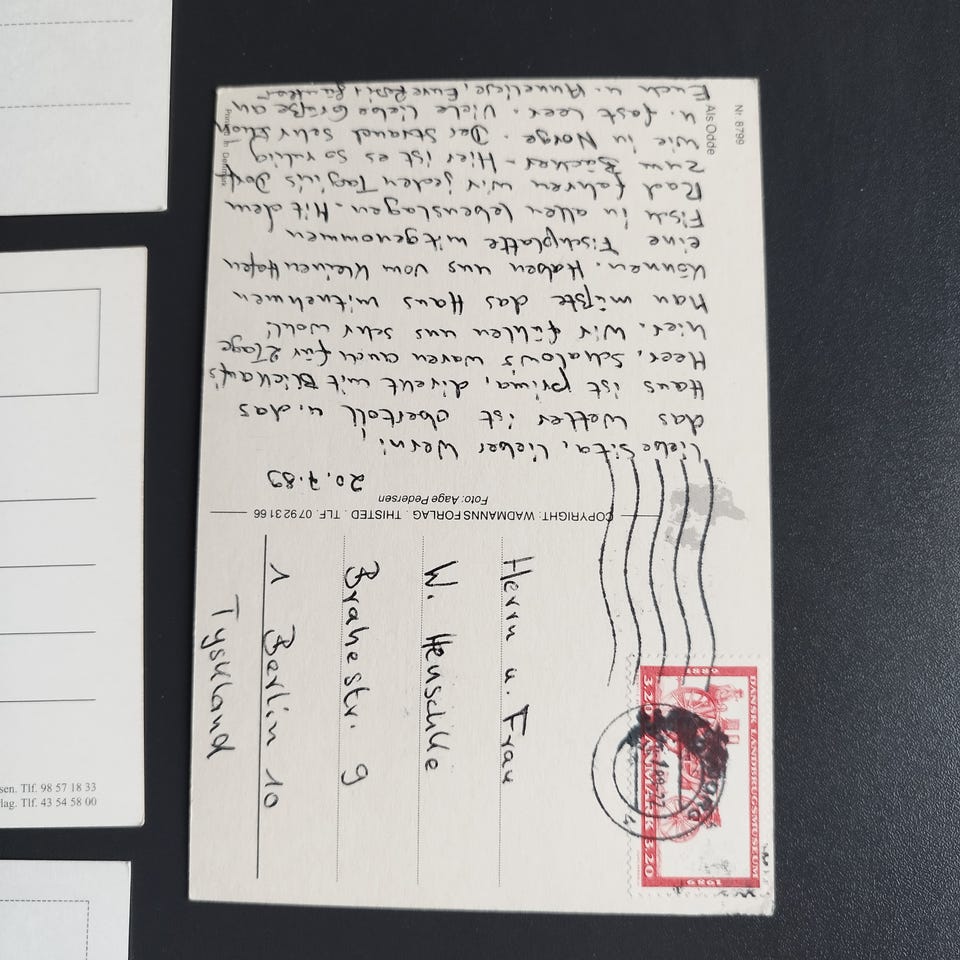 Nr. 8799
Als Odde
20.7.89
Liebe Sita, lieber Werni!
das Wetter ist obertoll u. das
Haus ist prima, direkt mit Blick auf's
Meer, Schalow's waren auch für 2 Tage
hier. Wir fühlen uns sehr wohl!
Man müßte das Haus mitnehmen
können. Haben uns vom kleinen Hafen
eine Fischplatte mitgenommen
Fisch in allen Lebenslagen. Mit dem
Rad fahren wir jeden Tag in's Dorf
zum Bäcker - Hier ist es so ruhig
wie in Norge. Der Strand sehr schön
u. fast leer. Viele liebe Grüße an
Euch u. Anneliese, Eure
Printed in Denmark
COPYRIGHT: WADMANNS FORLAG . THISTED . TLF. 07 92 31 66
Foto: Aage Pedersen
Herrn u. Frau
W. Henschke
Brahestr. 9
1 Berlin 10
Tyskland
DANSK LANDBRUGSMUSEUM
1889
1989
3.20 DANMARK 3.20
sen. Tlf. 98 57 18 33
lag. Tlf. 43 54 58 00